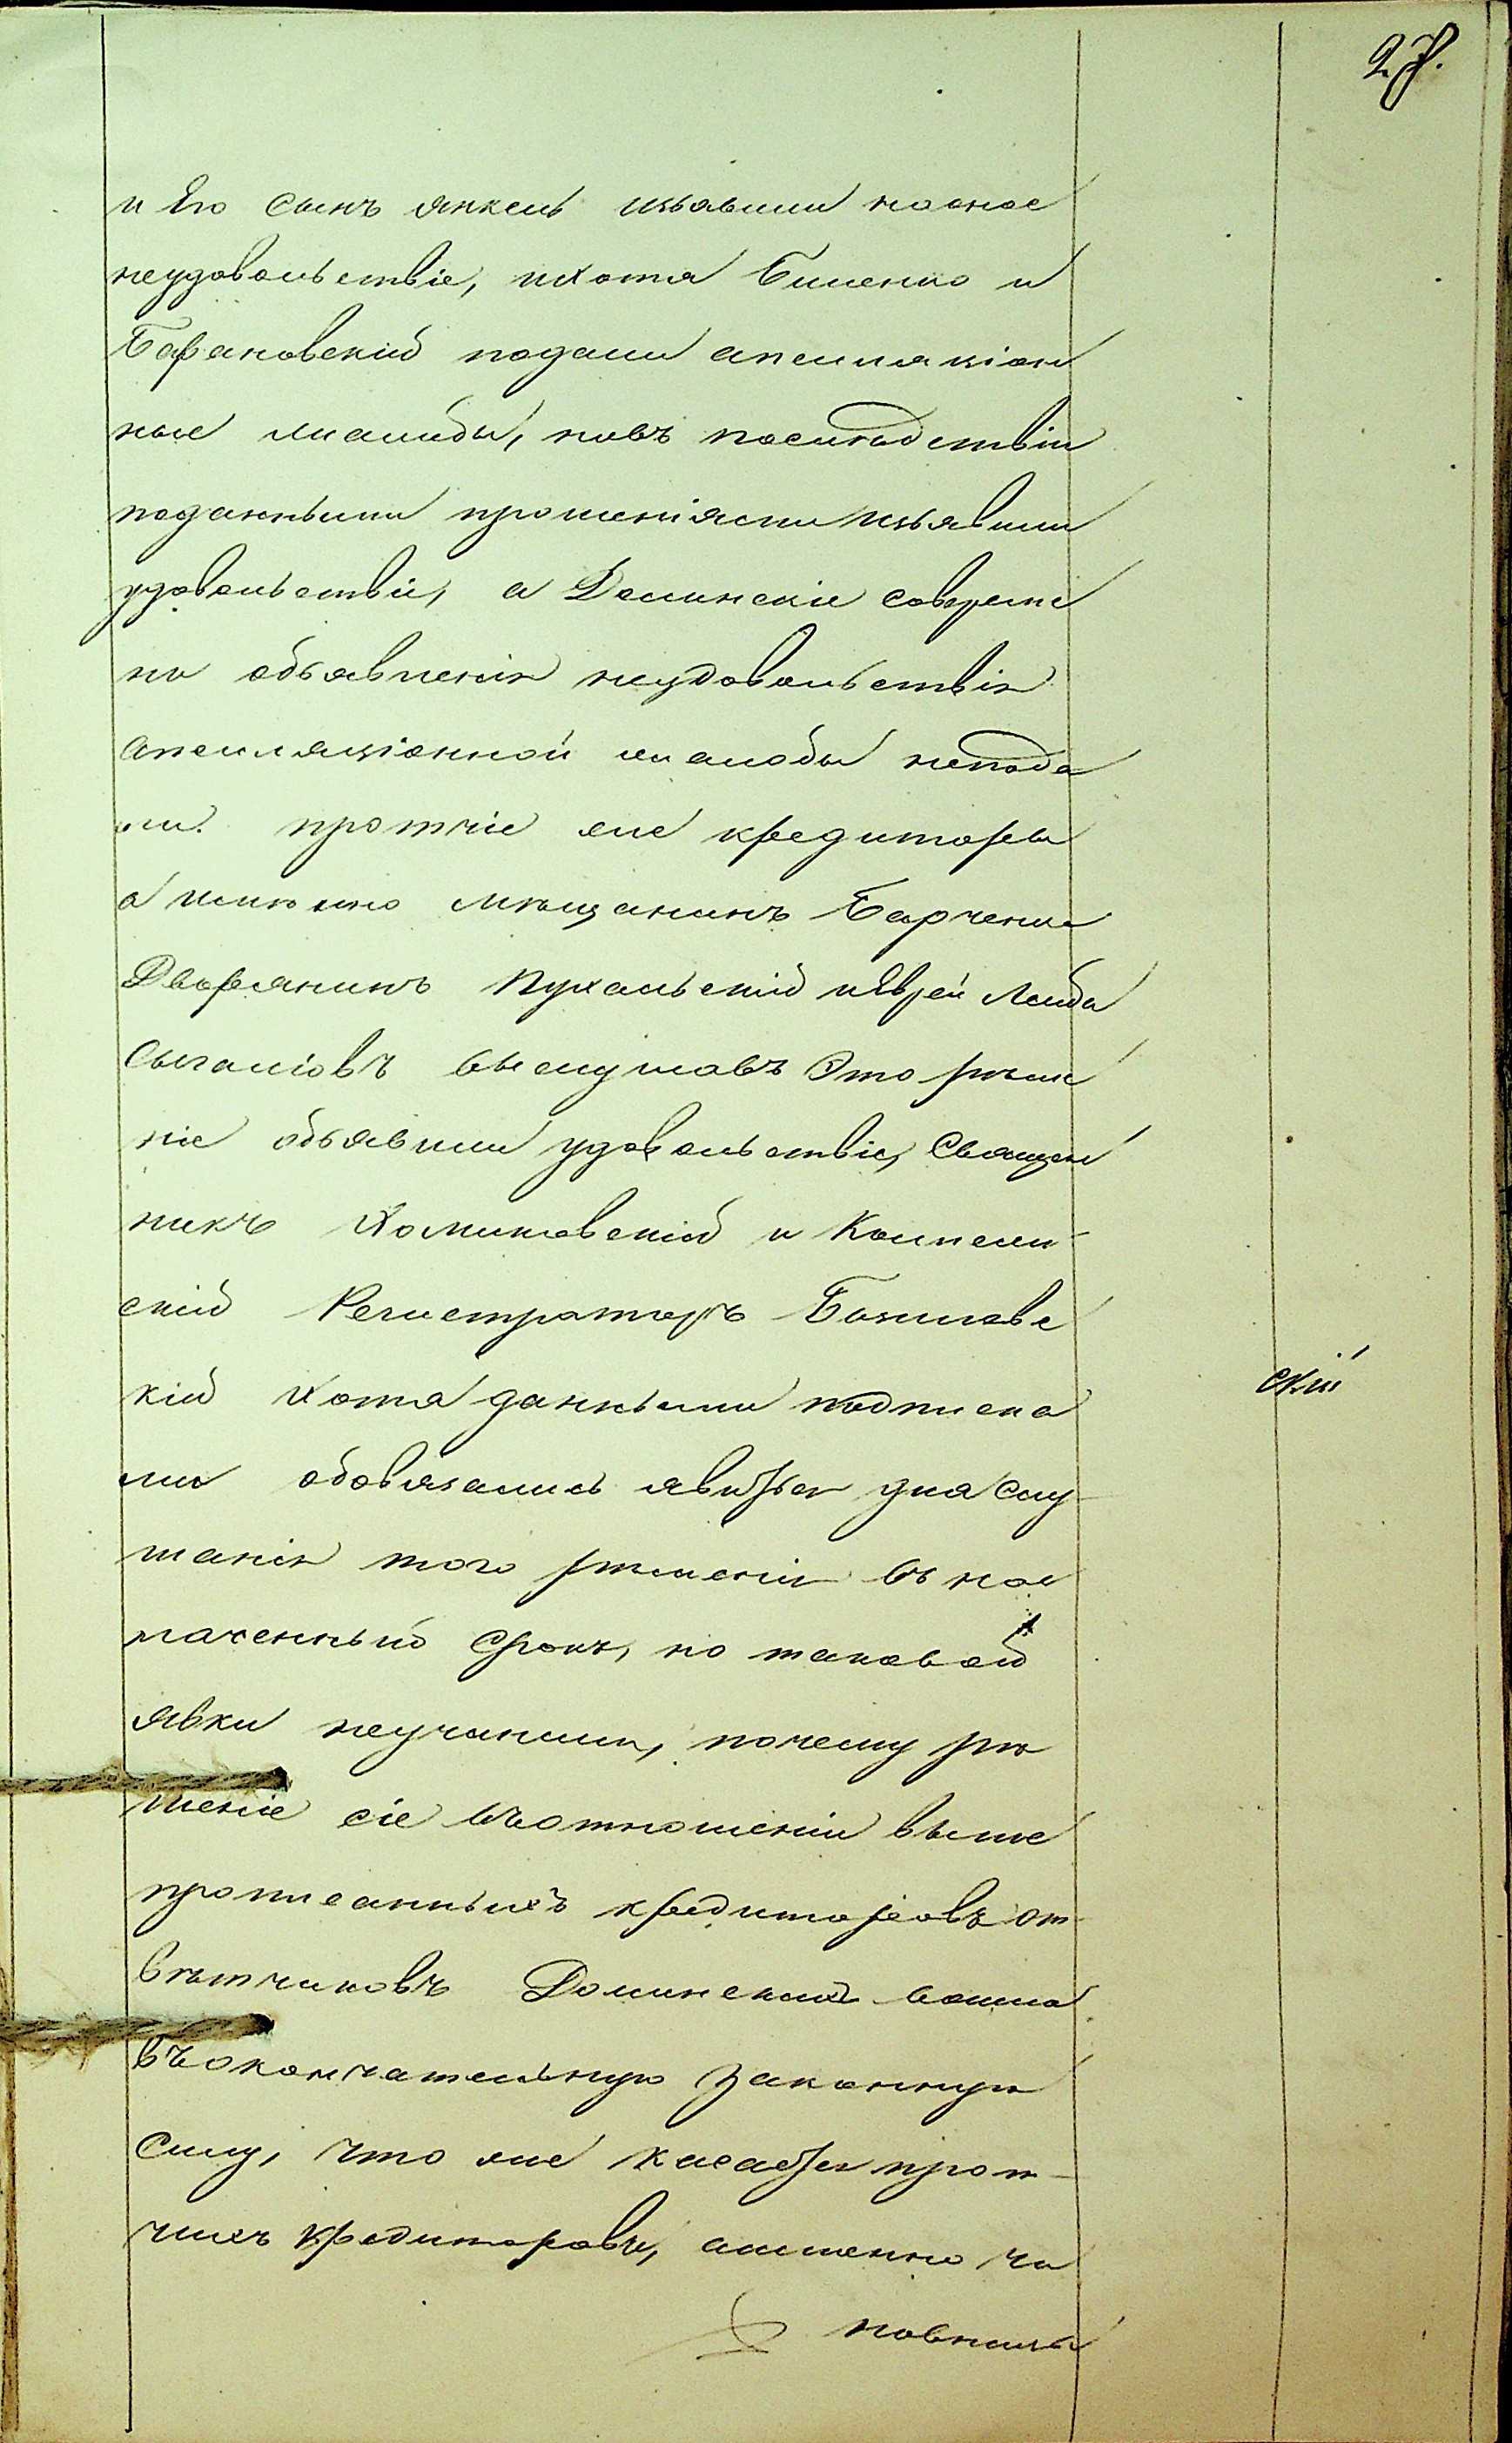 27.
и Его сынъ Янкель изъявили полное
неудовольствіе, ихотя Биленко и
Барановскій подали апелляціон
ные жалобы, новъ последствіи
поданными прошеніями изъявили
удовольствіе, а Долинскіе совреме
ни объявленія неудовольствія
апелляціонной жалобы непода
ли. протчіе же кредиторы
а именно мѣщанинъ Барченко
Дворянинъ Пухальскій иЕврей Лейба
выслушавъ Это реше
ніе объявили удовольствіе, Священ
никъ Хоминовскій и Коллеж-
скій Регистраторъ
кій хотя данными подписка
ми обовязались явится для слу-
шанія того решенія въ наз
наченный срокъ, но таковой
явки неучинили, почему рѣ
шеніе сіе вотношеніи выше
прописанныхъ кредиторовъ от-
вѣтчиковъ Долинскихъ вошло
въокончательную законную
силу, что же касается прот-
чихъ кредиторовъ, аименно чи
новника
скій